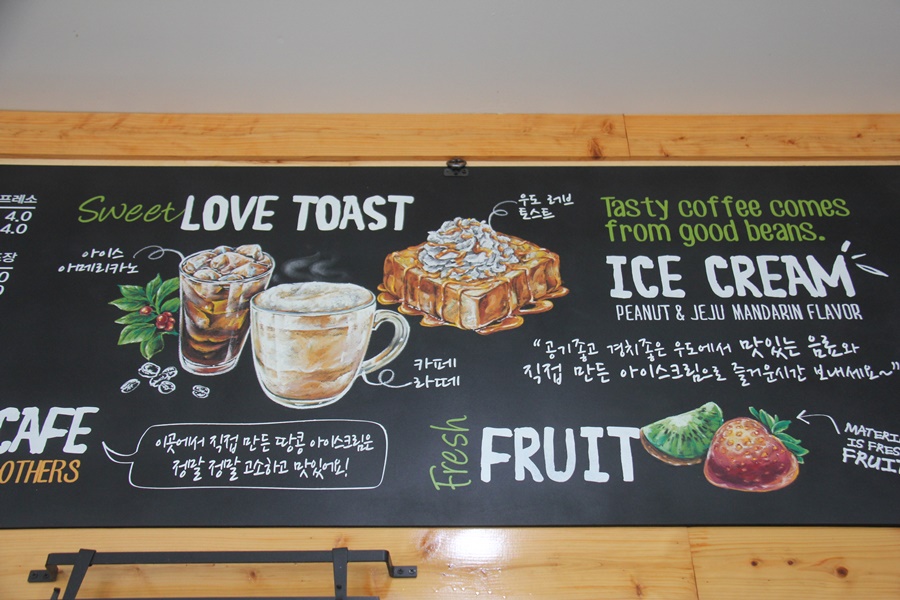 프레소
4.0
4.0
Sweet LOVE TOAST
아이스
아메리카노
우도 러브
토스트
카페
라떼
Tasty coffee comes
from good beans.
ICE CREAM
PEANUT & JEJU MANDARIN FLAVOR
“공기좋고 경치좋은 우도에서 맛있는 음료와
직접 만든 아이스크림으로 즐거운시간 보내세요~”
CAFE
OTHERS
이곳에서 직접 만든 땅콩 아이스크림은
정말 정말 고소하고 맛있어요!
Fresh FRUIT
MATERI
IS FRES
FRUIT